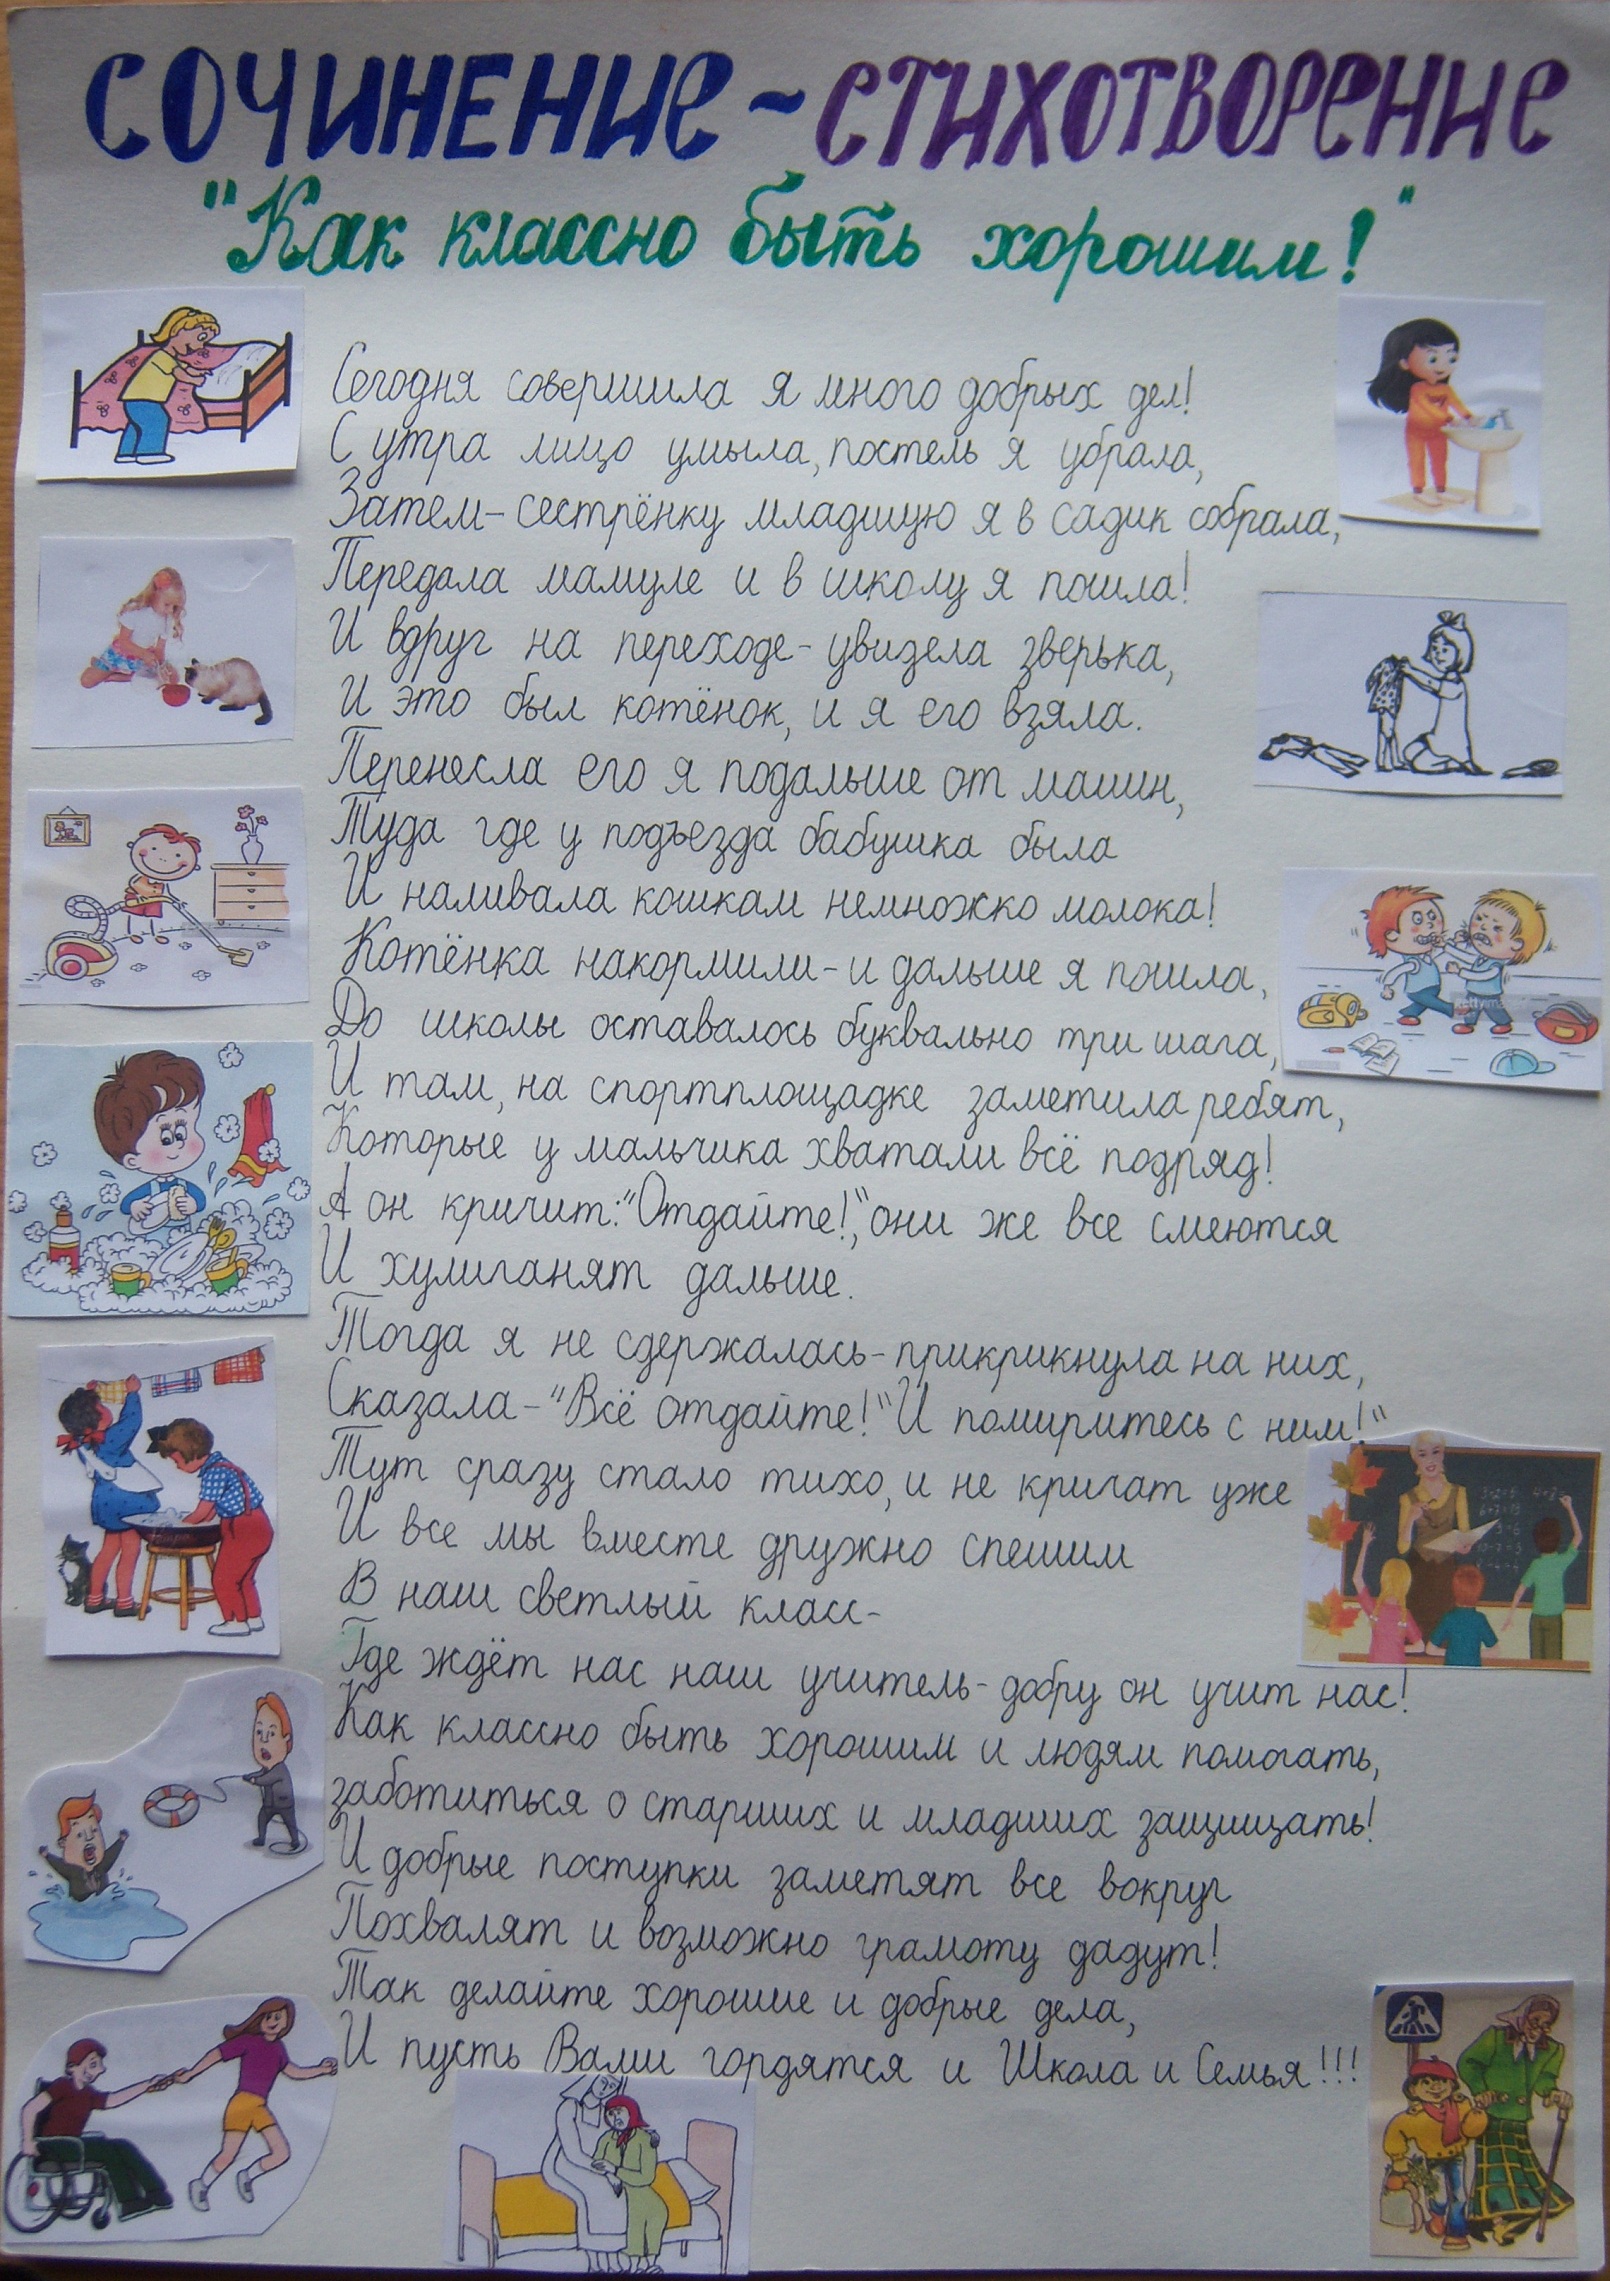 СОЧИНЕНИЕ~СТИХОТВОРЕНИЕ
"Как классно быть хорошим!"
Сегодня совершила я много добрых дел!
С утра лицо умыла, постель я убрала,
Затем-сестрёнку младшую я в садик собрала,
Передала мамуле и в школу я пошла!
И вдруг на переходе-увидела зверька,
И это был котёнок, и я его взяла.
Перенесла его я подальше от машин,
Туда где у подъезда бабушка была
И наливала кошкам немножко молока!
Котёнка накормили-и дальше я пошла,
До школы оставалось буквально три шага,
И там, на спортплощадке заметила ребят,
Которые у мальчика хватали всё подряд!
А он кричит:"Отдайте!", они же все смеются
И хулиганят дальше.
Тогда я не сдержалась-прикрикнула на них,
Сказала-"Всё отдайте!"И помиритесь с ним!"
Тут сразу стало тихо, и не кричат уже
И все мы вместе дружно спешим
В наш светлый класс-
Где ждёт нас наш учитель-добру он учит нас!
Как классно быть хорошим и людям помогать,
заботиться о старших и младших защищать!
И добрые поступки заметят все вокруг
Похвалят и возможно грамоту дадут!
Так делайте хорошие и добрые дела,
И пусть Вами гордятся и Школа и Семья!!!